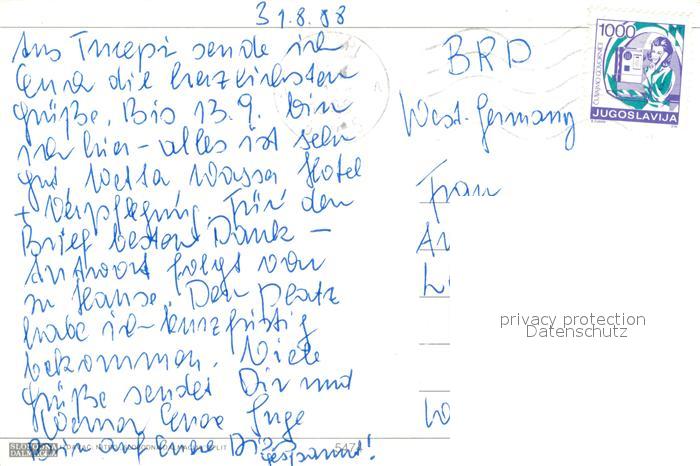 31.8.88
Aus Tucepi sende ich
Euch die herzlichsten
Grüße. Bis 13.9. bin
ich hier - alles ist sehr
gut Wetter Wasser Hotel
+ Verpflegung. Für den
Brief besten Dank -
Antwort folgt von
zu Hause. Den Platz
habe ich kurzfristig
bekommen. Viele
Grüße sendet Dir und
Werner Eure Inge
Bin auf Eure
gespannt!
BRD
West-Germany
Frau
1000
JUGOSLAVIJA
privacy protection
Datenschutz
SLOBODNA
DALMACIJA